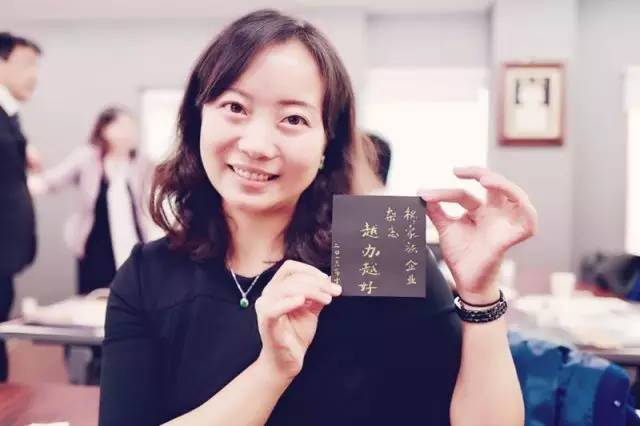 祝家族企业
杂志
越办越好